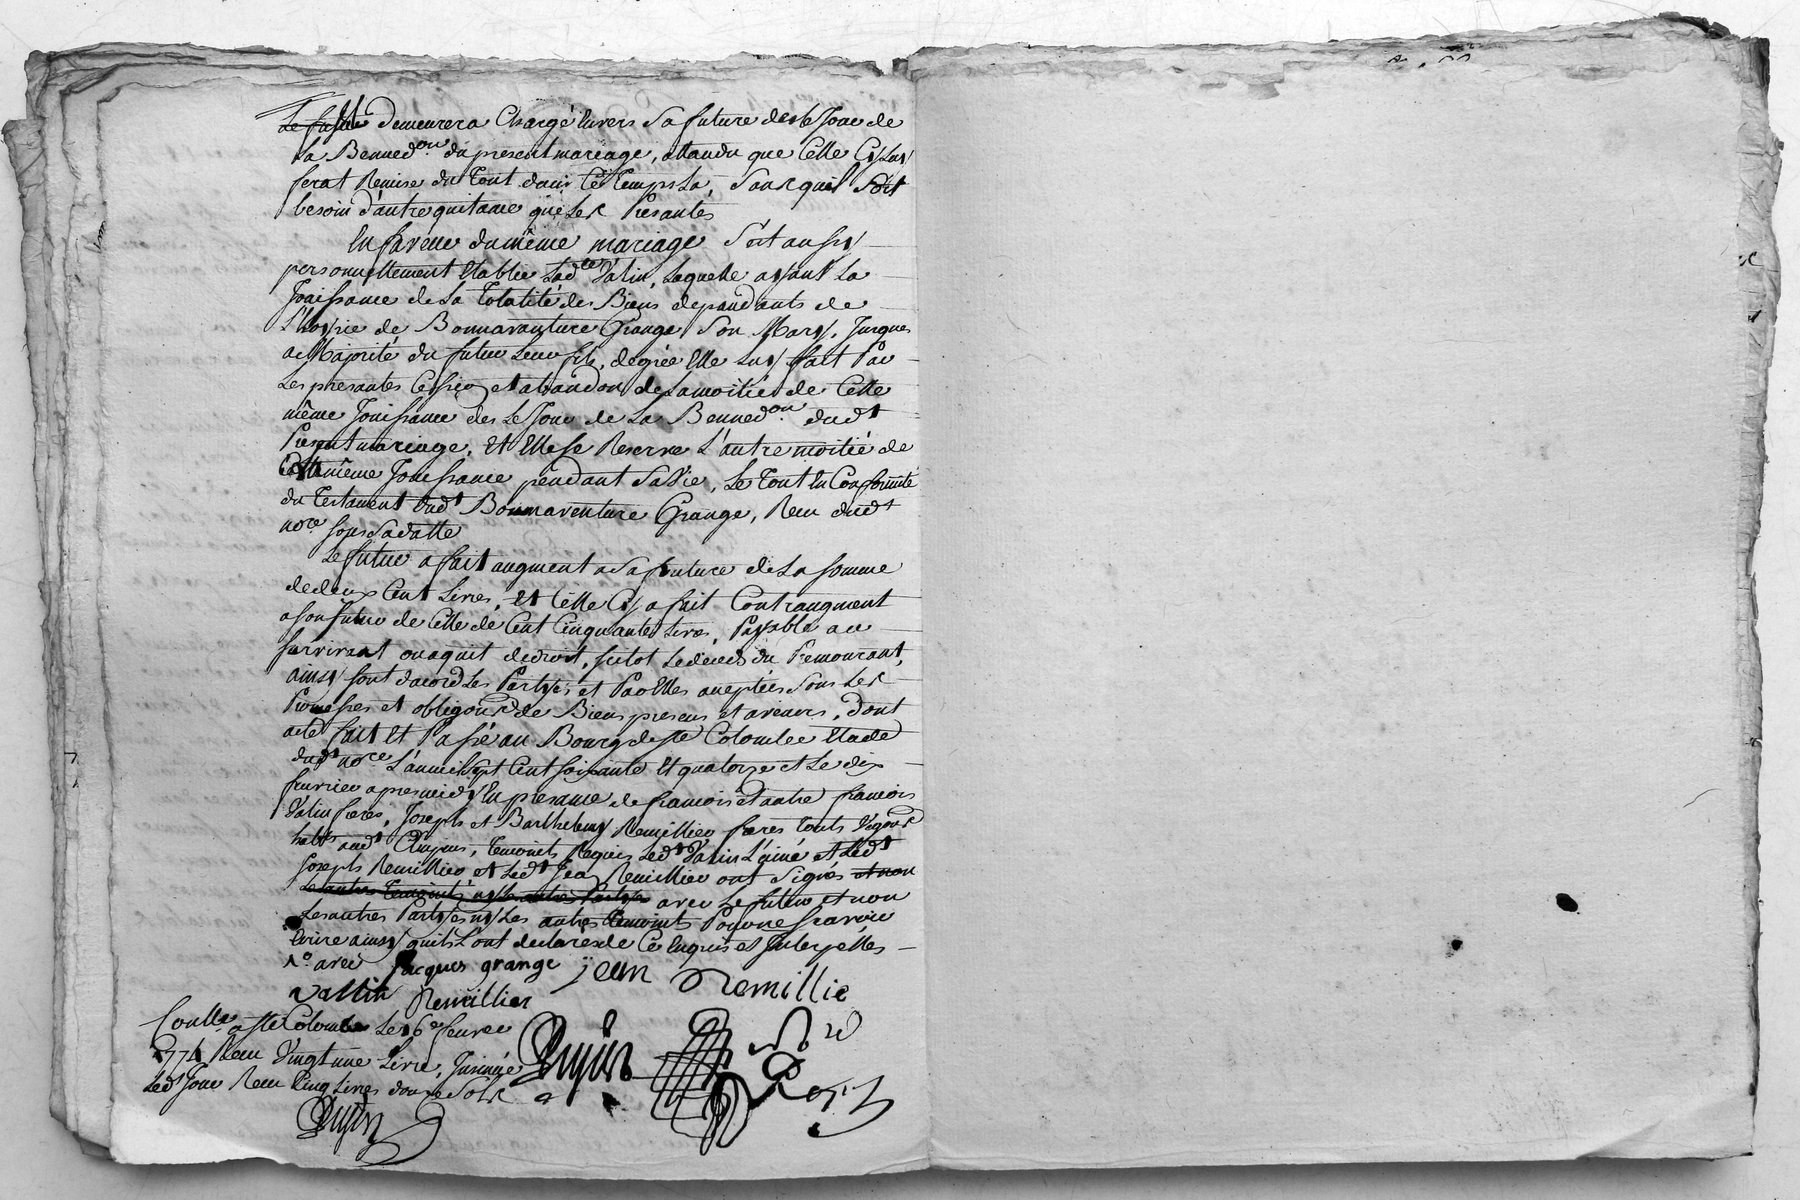 demeurera Chargé Envers Sa future des le Jour de
La Benned.on du present mariage, attandu que Celle Cy Luy
ferat Remise du tout dans Ce temps La, Sans quil Soit
besoin d'autre quitance que Les Presantes
En faveur du même mariage S'est aussy
personnellement Etablie Lad.te Valin, Laquelle ayant La
Jouissance de La Totalité des Biens depandants de
L'hoyrie de Bonnavanture Grange Son Mary, Jusques
a Majorité du futur Leur fils, de grée Elle Luy fait Par
Les presantes Cession et abandon de La moitié de Cette
même Jouissance des Le Jour de La Benned.on dud.t
Present mariage, Et Elle Se Reserve L'autre moitié de
Cette même Jouissance pendant Sa Vie, Le tout En Conformité
du Testament dud.t Bonnaventure Grange, Recu dud.t
no.re sous Sa datte
Le futur a fait augment a Sa future de La Somme
de deux Cent Livres, Et Celle Cy a fait Contraugment
a Son futur de Celle de Cent Cinquante Livres, Payable au
Survivant ou aquit de droit, Sitot Le deces du Premourant,
ainsy Sont d'acord Les Partyes et Par Elles aceptées Sous Les
Promesses et obligou.s de Biens presens et avenirs, Dont
acte fait Et Passé au Bourg de Ste Colombe Etude
dud.t no.re L'an mil Sept Cent Soixante Et quatorze et Le dix
fevrier apres midy En presance de francois et autre francois
Valin freres, Joseph et Barthelemy Remillieu freres touts Vigour.s
habt.s aud.t Ampuis, temoints Requis Led.t Valin L'ainé et Led.t
Joseph Remillieu et Led.t Jean Remillieu ont Signés et non
Les autres Temoints ny Les autres Partyes avec Le futur et non
Les autres Partyes ny Les autres temoints Pour ne Scavoir
Ecrire ainsy quils L'ont declarés de Ce Enquis et Interpellés
avec Jacques grange jean Remillie
Vallin Remillier
Conllé a Ste Colombe Le 16e fevrier
1774 Recu Vingt une Livre, Insinué
Led.t Jour Recu Cinq Livres douze Sols